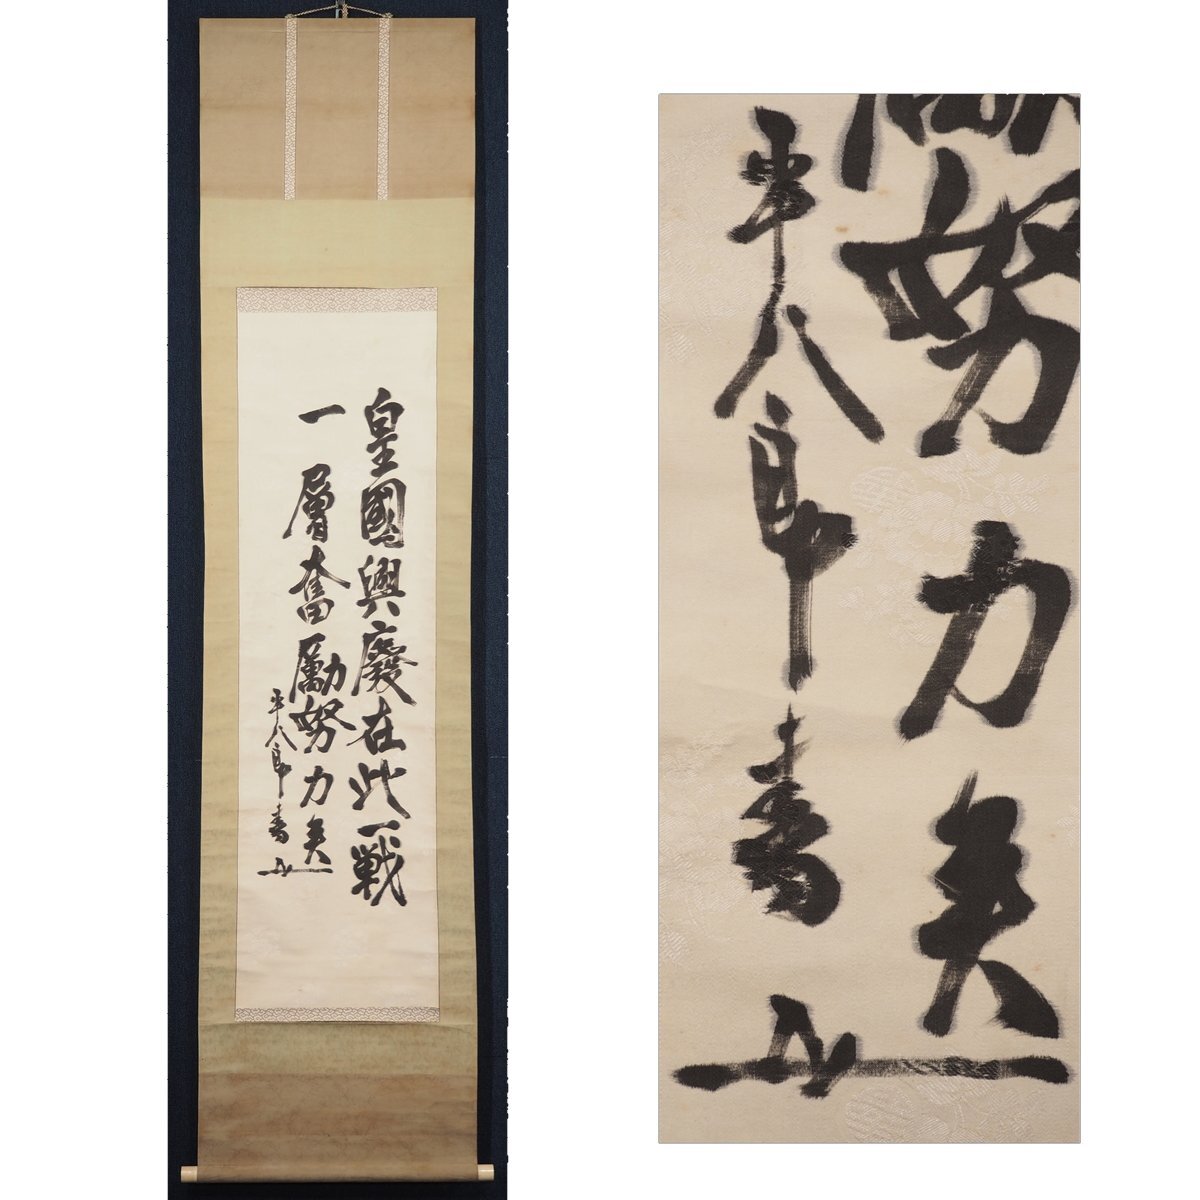 皇國興廢在此一戦
一層奮勵努力矣
平八郎書
努力矣
平八郎書